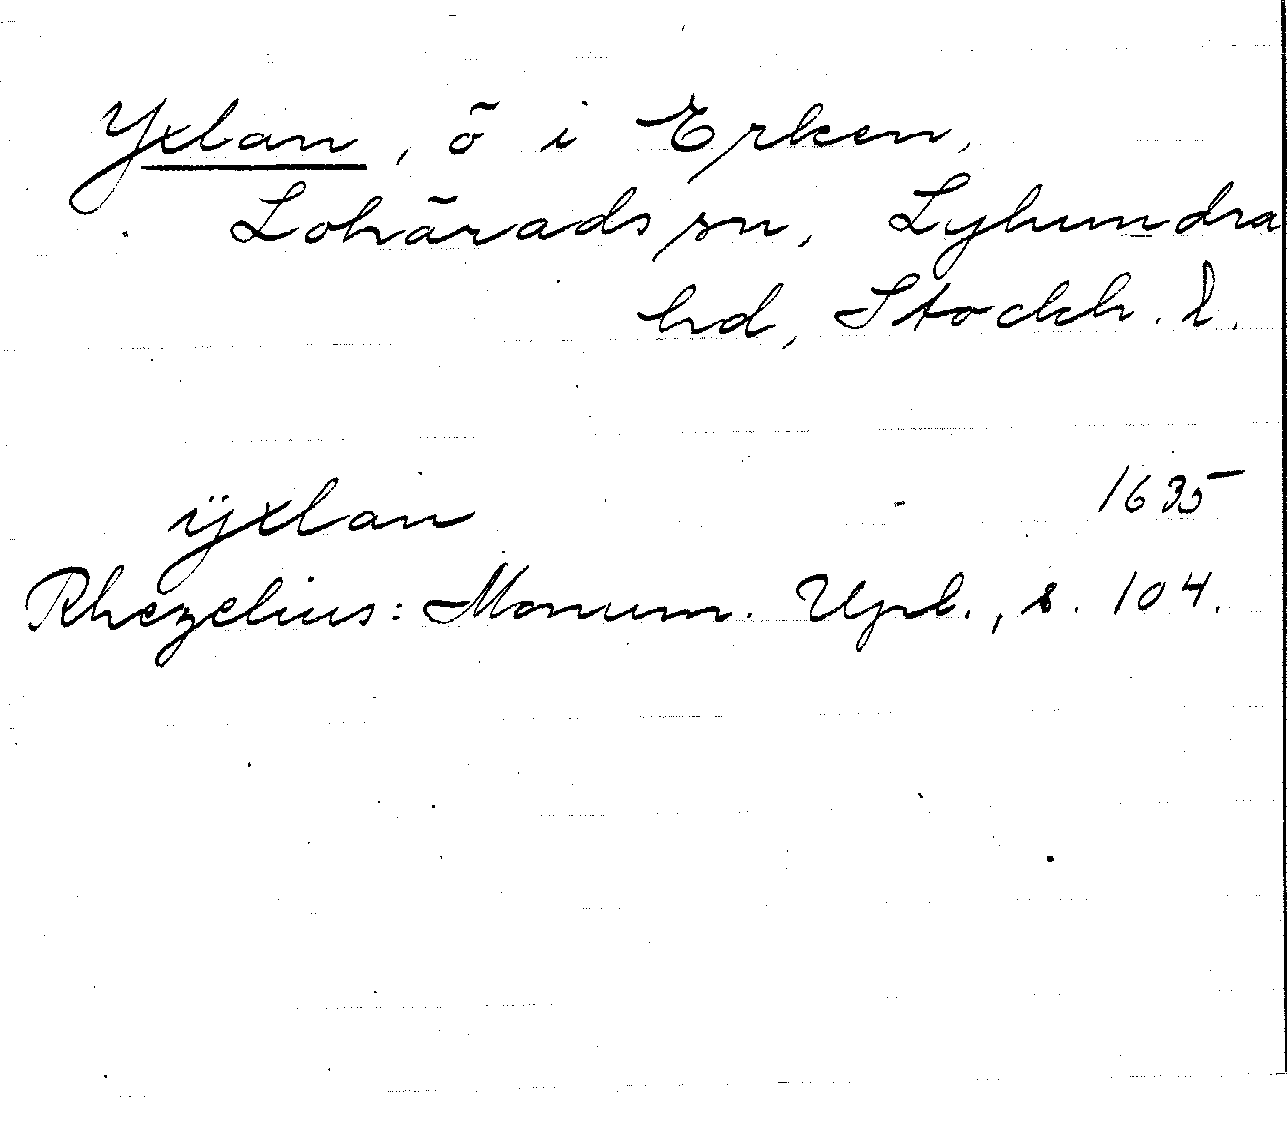 Yxlan, ö i Erken,
Lohärads sn, Lyhundra
hd, Stockh. l.
ÿxlan - 1635
Rhezelius: Monum. Upl., s. 104.